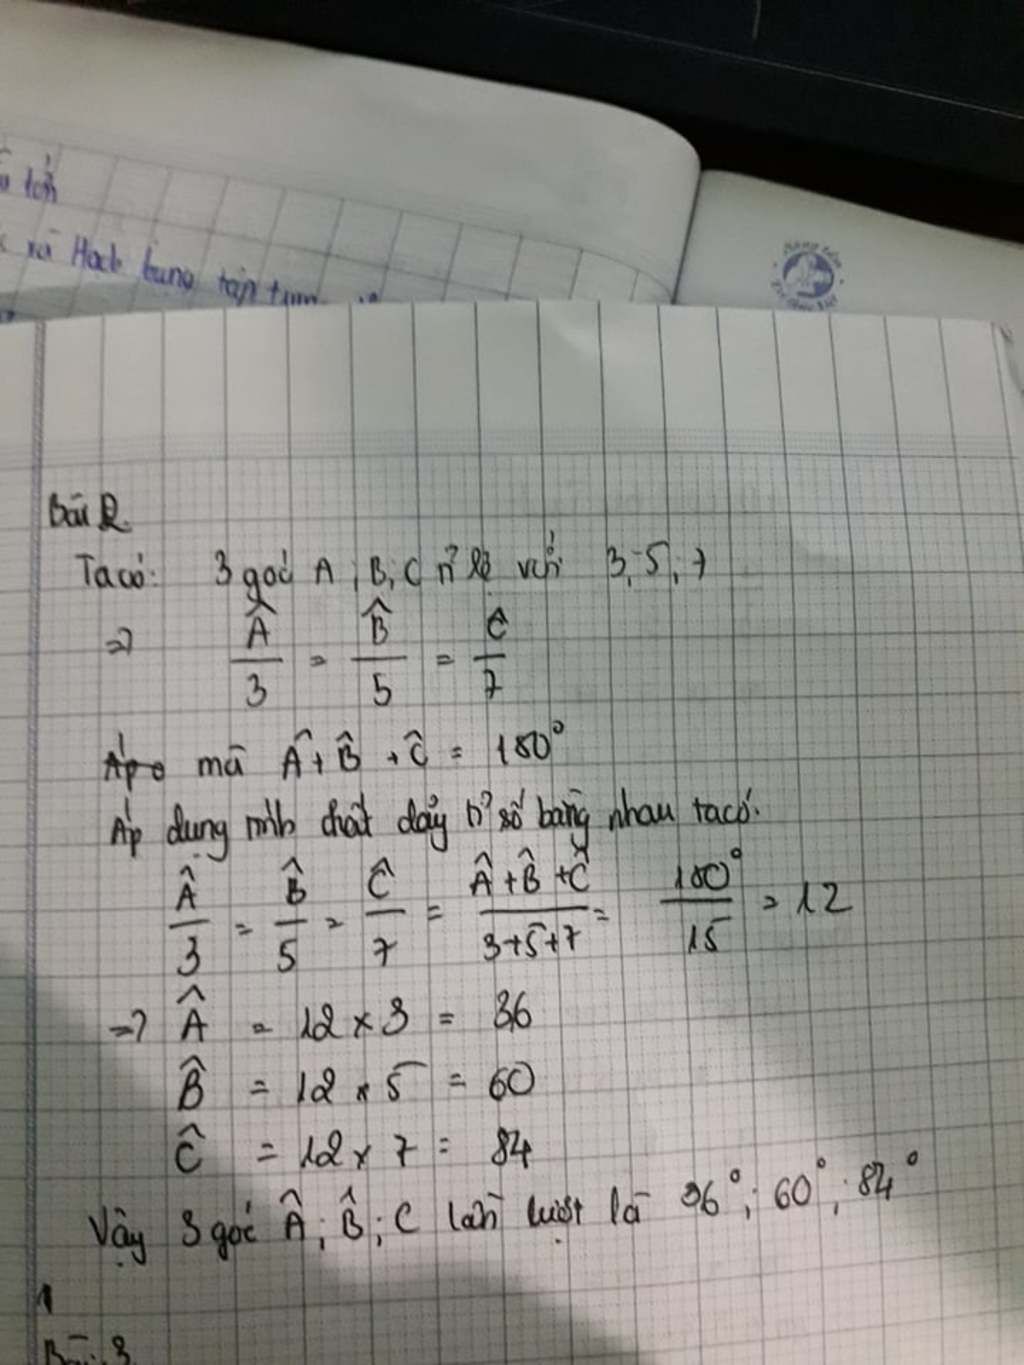 xã Hach bung tập trung
Bài 2
Ta có: 3 góc A, B, C tỉ lệ với 3, 5, 7
=> Â/3 = B̂/5 = Ĉ/7
mà Â + B̂ + Ĉ = 180°
Áp dụng tính chất dãy tỉ số bằng nhau ta có:
Â/3 = B̂/5 = Ĉ/7 = Â + B̂ + Ĉ/3+5+7 = 180°/15 = 12
=> Â = 12 x 3 = 36
B̂ = 12 x 5 = 60
Ĉ = 12 x 7 = 84
Vậy 3 góc Â; B̂; C lần lượt là 36°; 60°; 84°
Bài 3